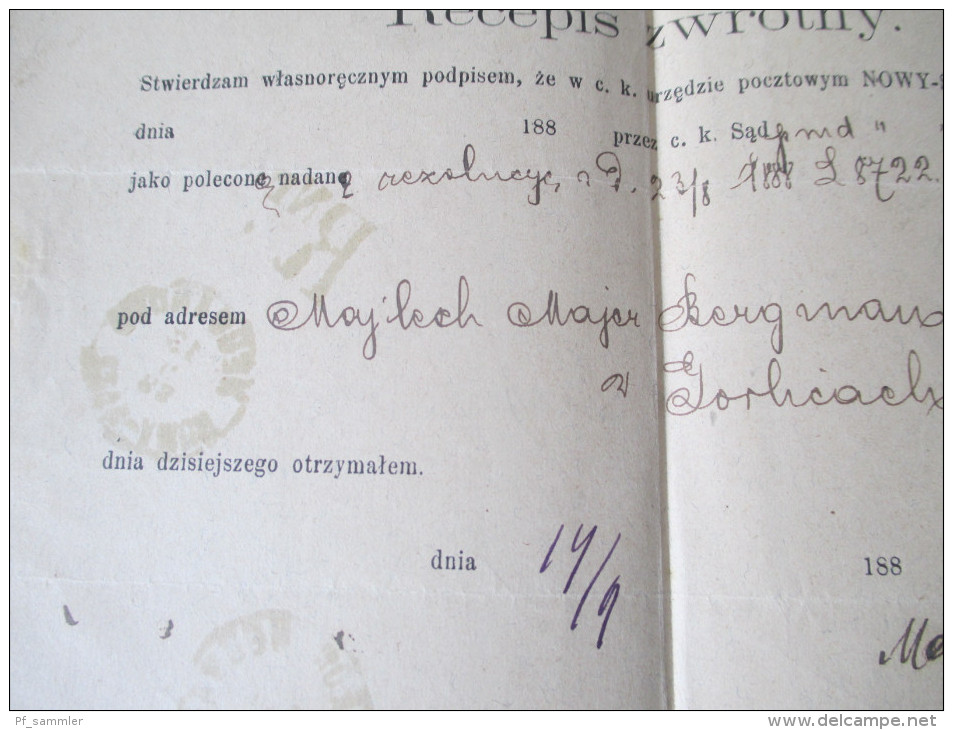 Recepis zwrotny.
Stwierdzam własnoręcznym podpisem, że w c. k. urzędzie pocztowym NOWY-
dnia 188 przez c. k. Sąd
jako poleconę nadanę rezolucyę 23/8 1888 L 8722.
pod adresem Majlech Majer Bergman
w Gorlicach
dnia dzisiejszego otrzymałem.
dnia 14/9 188
Ma
Pf_sammler
www.delcampe.net